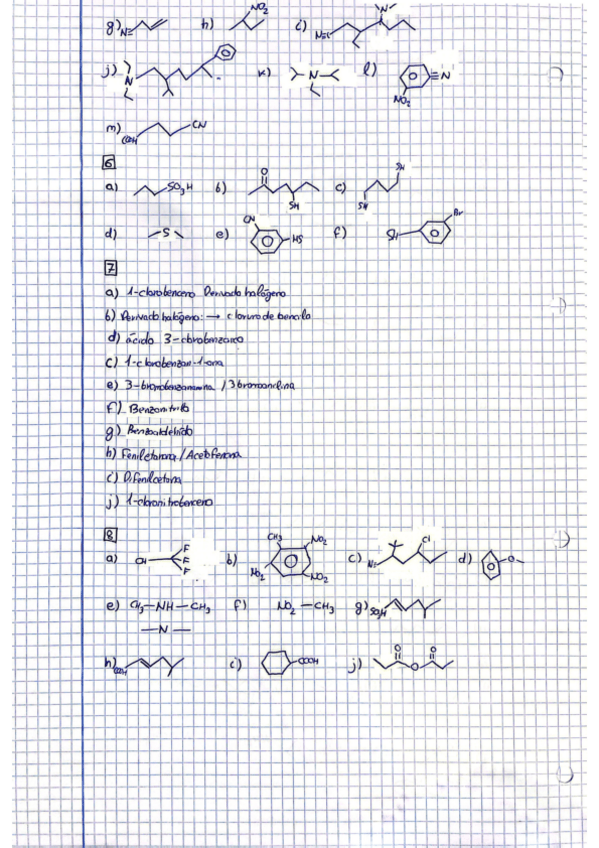 g) N≡ h) NO₂ i) N≡ N
j) N k) N l) ≡N NO₂
m) COOH CN
6
a) SO₃H b) O SH c) SH SH
d) S e) CN HS f) SH Br
7
a) 1-clorobenceno Derivado halógeno
b) Derivado halógeno: → cloruro de bencilo
d) ácido 3-clorobenzoico
c) 1-clorobenzan-1-ona
e) 3-bromobenzanamina / 3bromoanilina
f) Benzonitrilo
g) Benzoaldehído
h) Feniletanona / Acetofenona
i) Difenilcetona
j) 1-cloronitrobenceno
8
a) OH F F F b) CH₃ NO₂ NO₂ NO₂ c) N≡ Cl d) O
e) CH₃-NH-CH₃ f) NO₂-CH₃ g) SO₃H
-N-
h) COOH i) COOH j) O O O